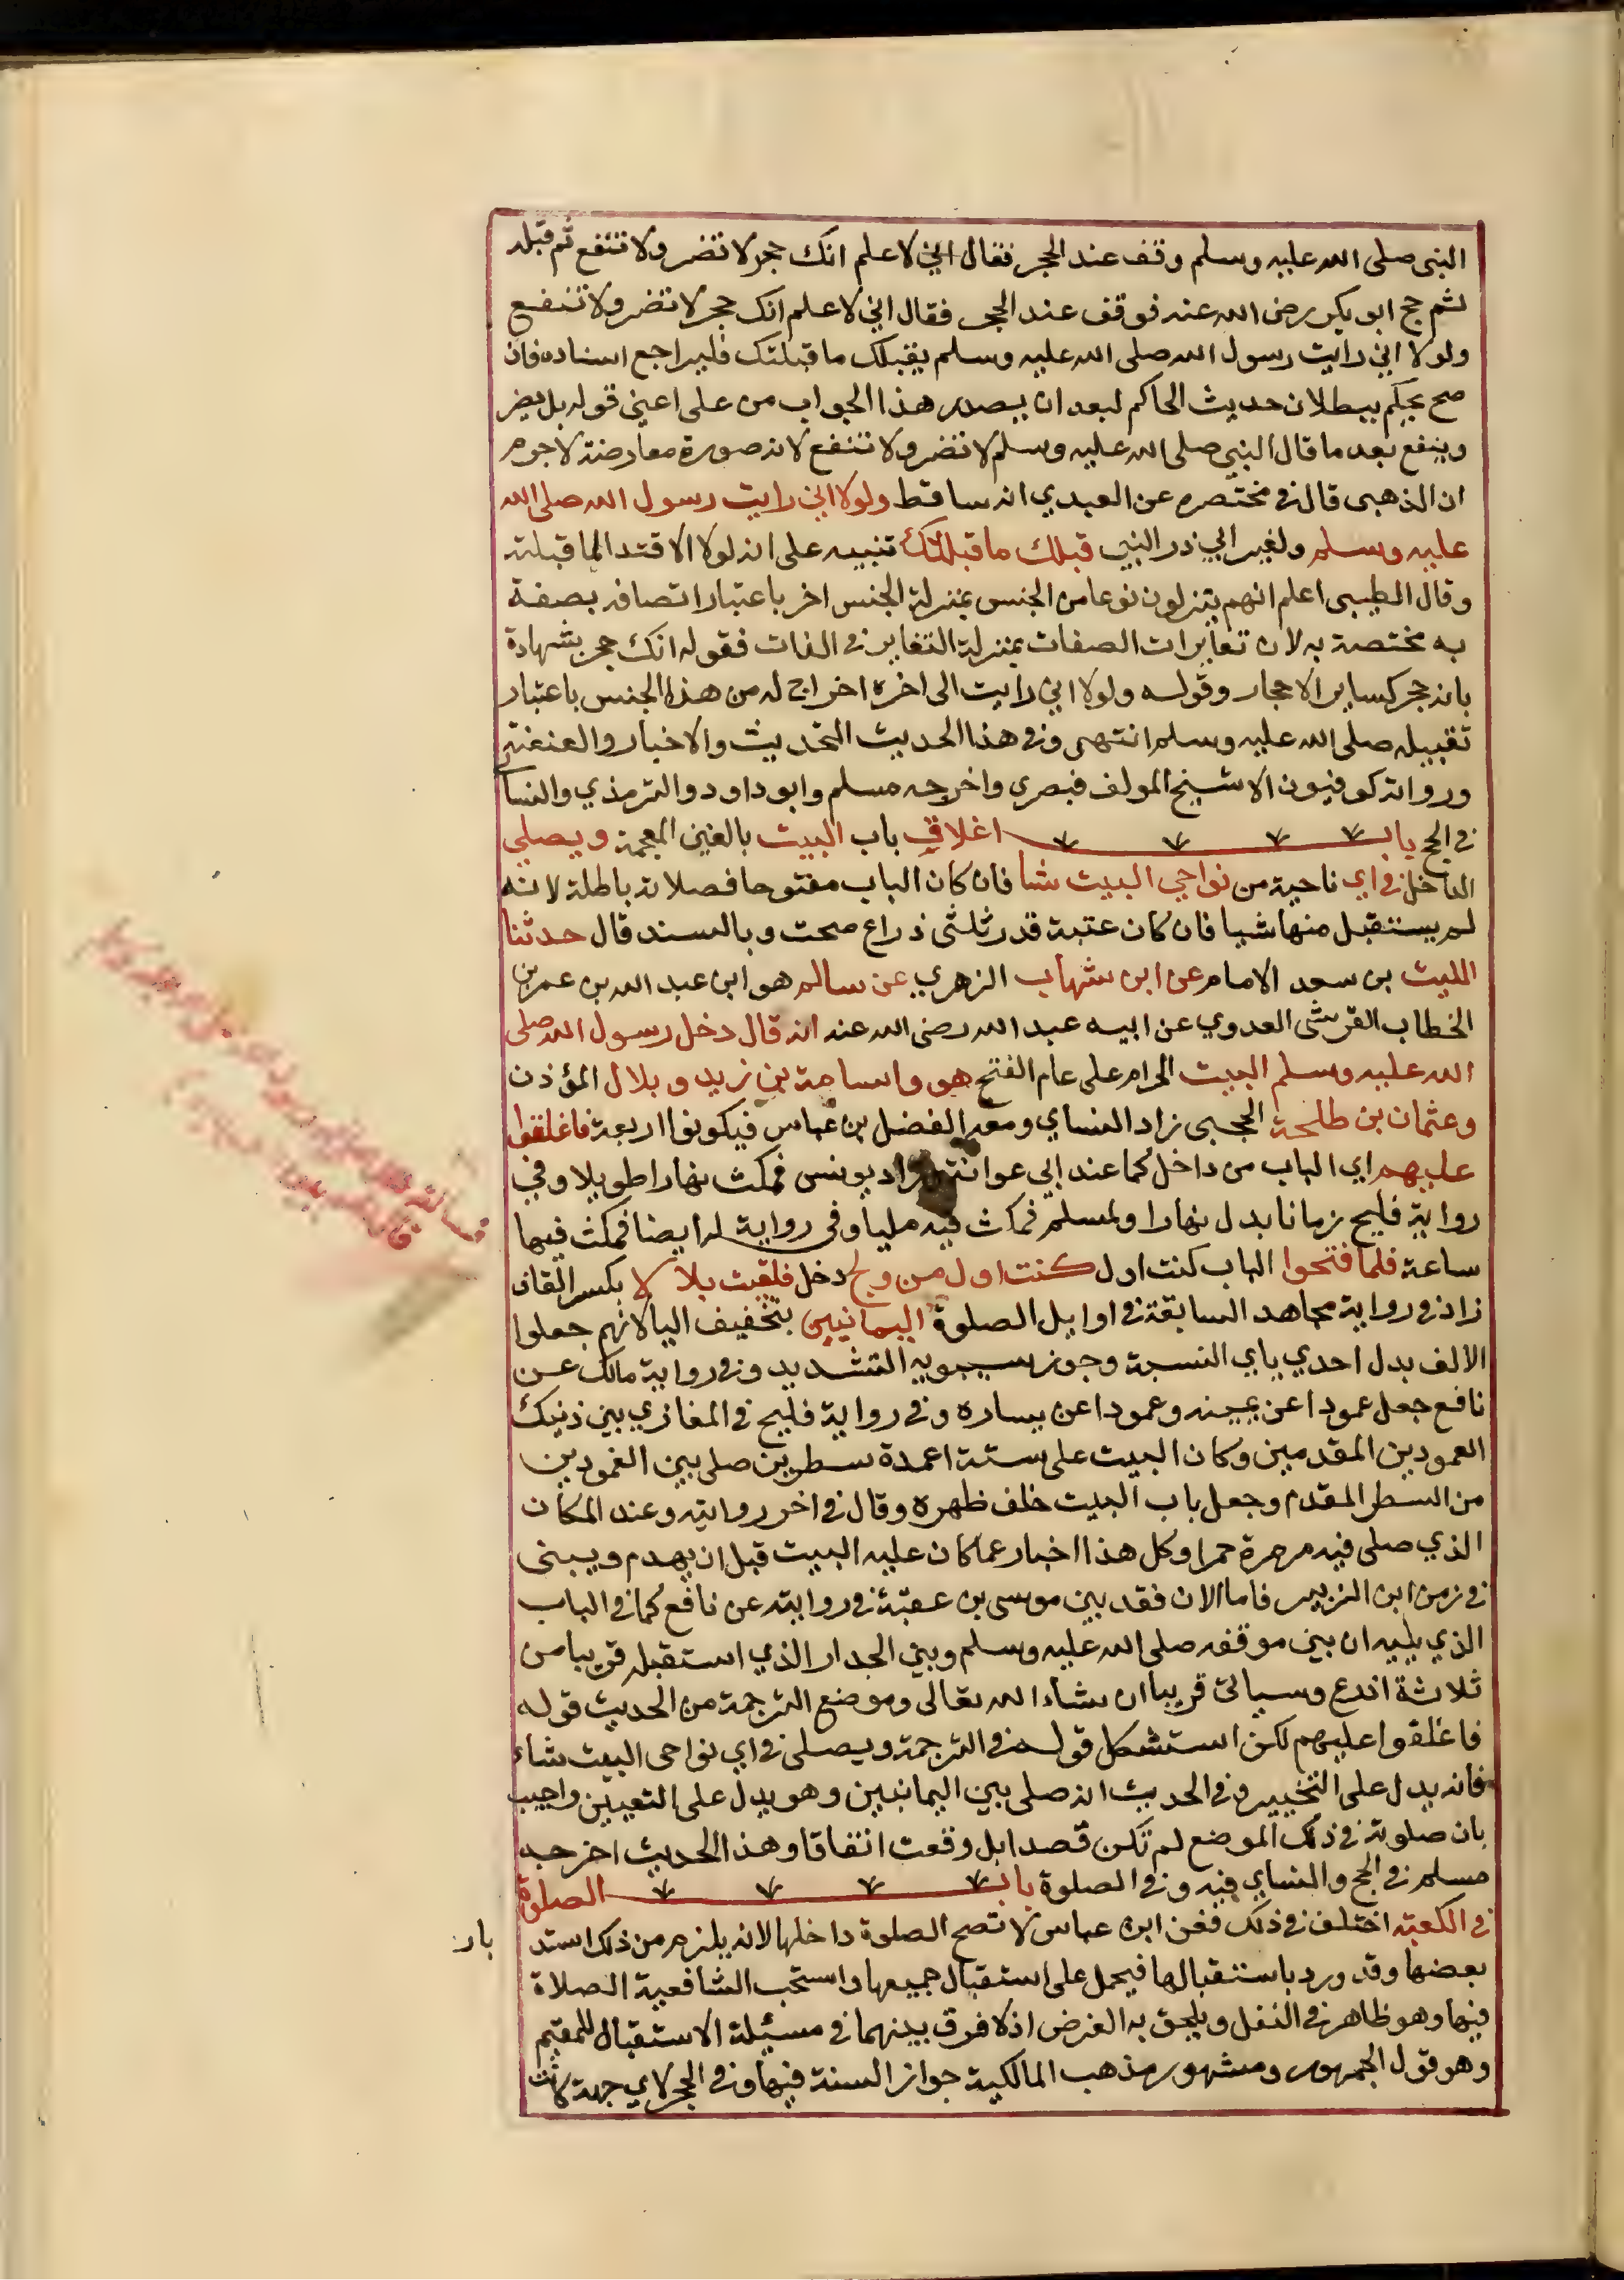 النبى صلى الله عليه وسلم وقف عند الحجر فقال اني لاعلم انك حجر لا تضر ولا تنفع ثم قبله
ثم حج ابو بكر رضى الله عنه فوقف عند الحجر فقال اني لاعلم انك حجر لا تضر ولا تنفع
ولولا اني رايت رسول الله صلى الله عليه وسلم يقبلك ما قبلتك فليراجع اسناده فان
صح يحكم ببطلان حديث الحاكم لبعد ان يصدر هذا الجواب من على اعني قوله بل يضر
وينفع بعد ما قال النبي صلى الله عليه وسلم لا تضر ولا تنفع لانه صورة معارضة لا جرم
ان الذهبى قال في مختصره عن العبدي انه ساقط ولولا اني رايت رسول الله صلى الله
عليه وسلم ولغير ابي ذر النبي قبلك ما قبلتك تنبيه على انه لولا الاقتدا لما قبلته
وقال الطيبى اعلم انهم ينزلون نوعا من الجنس بمنزلة الجنس اخر باعتبار اتصافه بصفة
به مختصة به لان تغايرات الصفات بمنزلة التغاير في الذات فقوله انك حجر بشهادة
بانه حجر كساير الاحجار وقوله ولولا اني رايت الى اخره اخراج له من هذا الجنس باعتبار
تقبيله صلى الله عليه وسلم انتهى وفي هذا الحديث التحديث والاخبار والعنعنة
ورواته كوفيون الا شيخ المولف فبصرى واخرجه مسلم وابو داود والترمذي والنساي
في الحج باب اغلاق باب البيت بالغين المعجمة ويصلي
الداخل في اي ناحية من نواحي البيت شا فان كان الباب مفتوحا فصلاته باطلة لانه
لم يستقبل منها شيا فان كان عتبة قدر ثلثى ذراع صحت وبالسند قال حدثنا
الليث بن سعد الامام عن ابن شهاب الزهري عن سالم هو ابن عبد الله بن عمر بن
الخطاب القرشى العدوي عن ابيه عبد الله رضى الله عنه انه قال دخل رسول الله صلى
الله عليه وسلم البيت الحرام على عام الفتح هو واسامة بن زيد وبلال المؤذن
وعثمان بن طلحة الحجبى زاد النساي ومعه الفضل بن عباس فيكونوا اربعة فاغلقوا
عليهم اي الباب من داخل كما عند ابي عوانة زاد يونس فمكث نهارا طويلا وفي
رواية فليح زمانا بدل نهارا ولمسلم فمكث فيه مليا وفى رواية له ايضا فمكث فيها
ساعة فلما فتحوا الباب كنت اول كنت اول من ولج دخل فلقيت بلالا بكسر القاف
زاد في رواية مجاهد السابقة في اوايل الصلوة اليمانيين بتخفيف اليا لانهم جعلوا
الالف بدل احدي ياي النسبة وجوز سيبويه التشديد وفي رواية مالك عن
نافع جعل عمودا عن يمينه وعمودا عن يساره وفي رواية فليح في المغازي بين ذنيك
العمودين المقدمين وكان البيت على ستة اعمدة سطرين صلى بين العمودين
من السطر المقدم وجعل باب البيت خلف ظهره وقال في اخر روايته وعند المكان
الذي صلى فيه مرمرة حمرا وكل هذا اخبار عما كان عليه البيت قبل ان يهدم ويبنى
في زمن ابن الزبير فاما الان فقد بين موسى بن عقبة في روايته عن نافع كما في الباب
الذي يليه ان بين موقفه صلى الله عليه وسلم وبين الجدار الذي استقبله قريبا من
ثلاثة اذرع وسياتى قريبا ان شاء الله تعالى وموضع الترجمة من الحديث قوله
فاغلقوا عليهم لكن استشكل قوله في الترجمة ويصلى في اي نواحى البيت شاء
فانه يدل على التخيير وفي الحديث انه صلى بين اليمانيين وهو يدل على التعيين واجيب
بان صلوته في ذلك الموضع لم تكن قصدا بل وقعت اتفاقا وهذا الحديث اخرجه
مسلم في الحج والنساي فيه وفي الصلوة باب الصلوة
في الكعبة اختلف في ذلك فعن ابن عباس لا تصح الصلوة داخلها لانه يلزم من ذلك استد
بار
بعضها وقد ورد باستقبالها فيحمل على استقبال جميعها واستحب الشافعية الصلاة
فيها وهو ظاهر في النفل ويلحق به الفرض اذ لا فرق بينهما في مسئلة الاستقبال للمقيم
وهو قول الجمهور ومشهور مذهب المالكية جواز السنة فيها وفي الحجر لاي جهة كانت